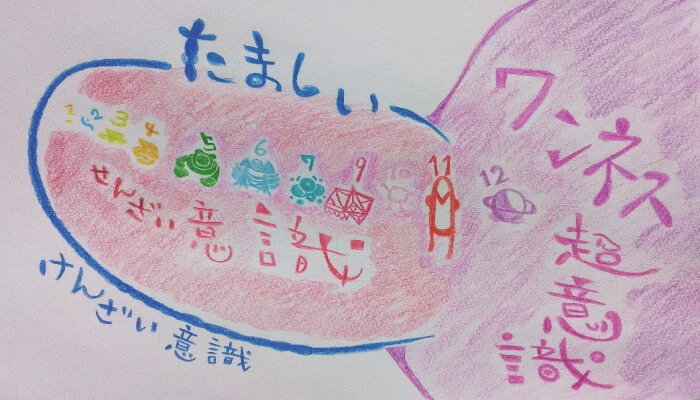 たましい
ワンネス
超意識
1 2 3 4 5 6 7 9 10 11 12
せんざい意識
けんざい意識